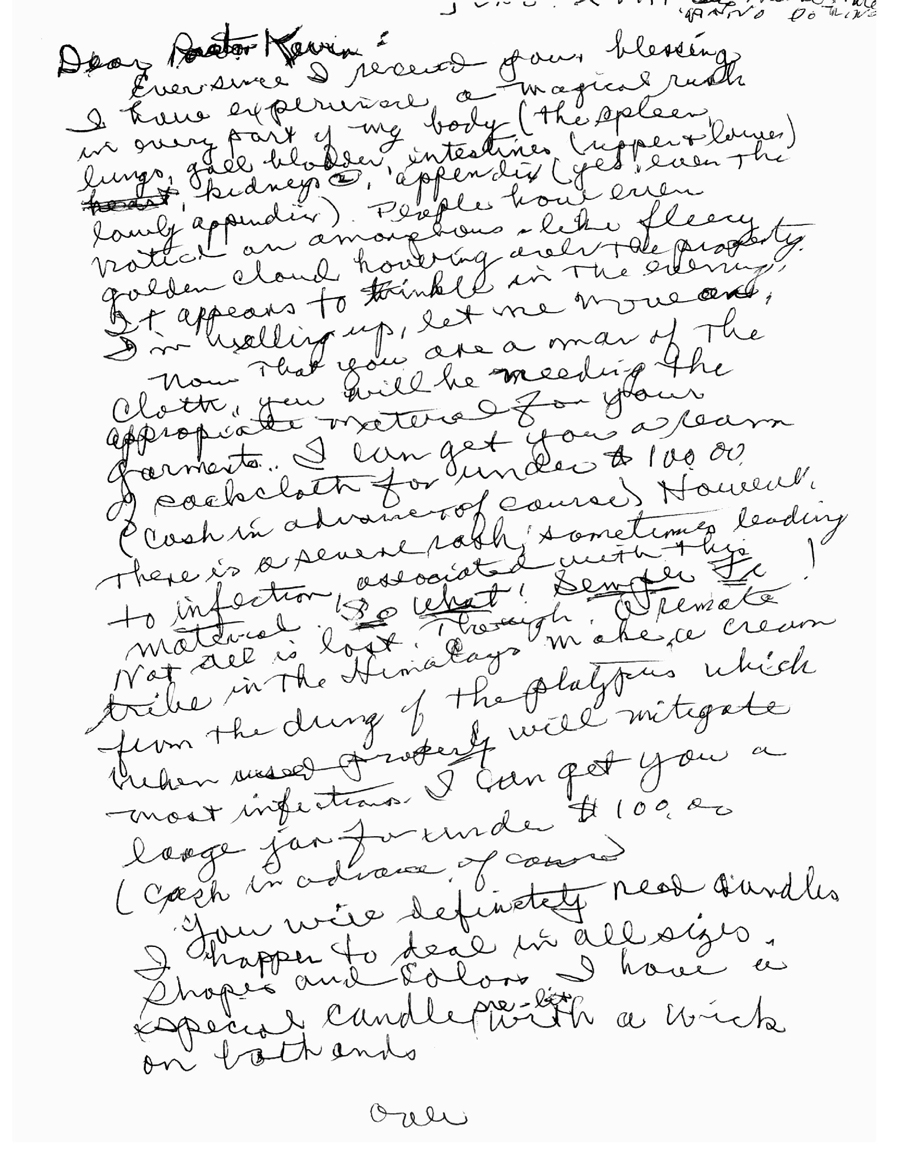 ANNO DOMINE
Dear Pastor Kevin:
Ever since I receved your blessing
I have experience a magical rush
in every part of my body (the spleen,
lungs, gall bladder, intestines (upper & lower)
heart, kidneys (2), appendix (yes, even the
lowly appendix). People have even
noticed an amorphous-like fleecy
golden cloud hovering over the property.
It appears to twinkle in the evening.
I'm welling up, let me move on.
Now that you are a man of the
Cloth, you will be needing the
appropiate material for your
garments.. I can get you a ream
of sackcloth for under $100.00
(cash in advance of course) However,
there is a severe rash, sometimes leading
to infection, associated with this
material. So what! Semper Fe!
Not all is lost though. A remote
tribe in the Himalays make a cream
from the dung of the platypus which
when used properly will mitigate
most infections. I can get you a
large jar for under $100.00
(cash in advance of course)
You will definetely need candles
I happen to deal in all sizes,
shapes and colors I have a
special candle pre-lit with a wick
on both ends
over